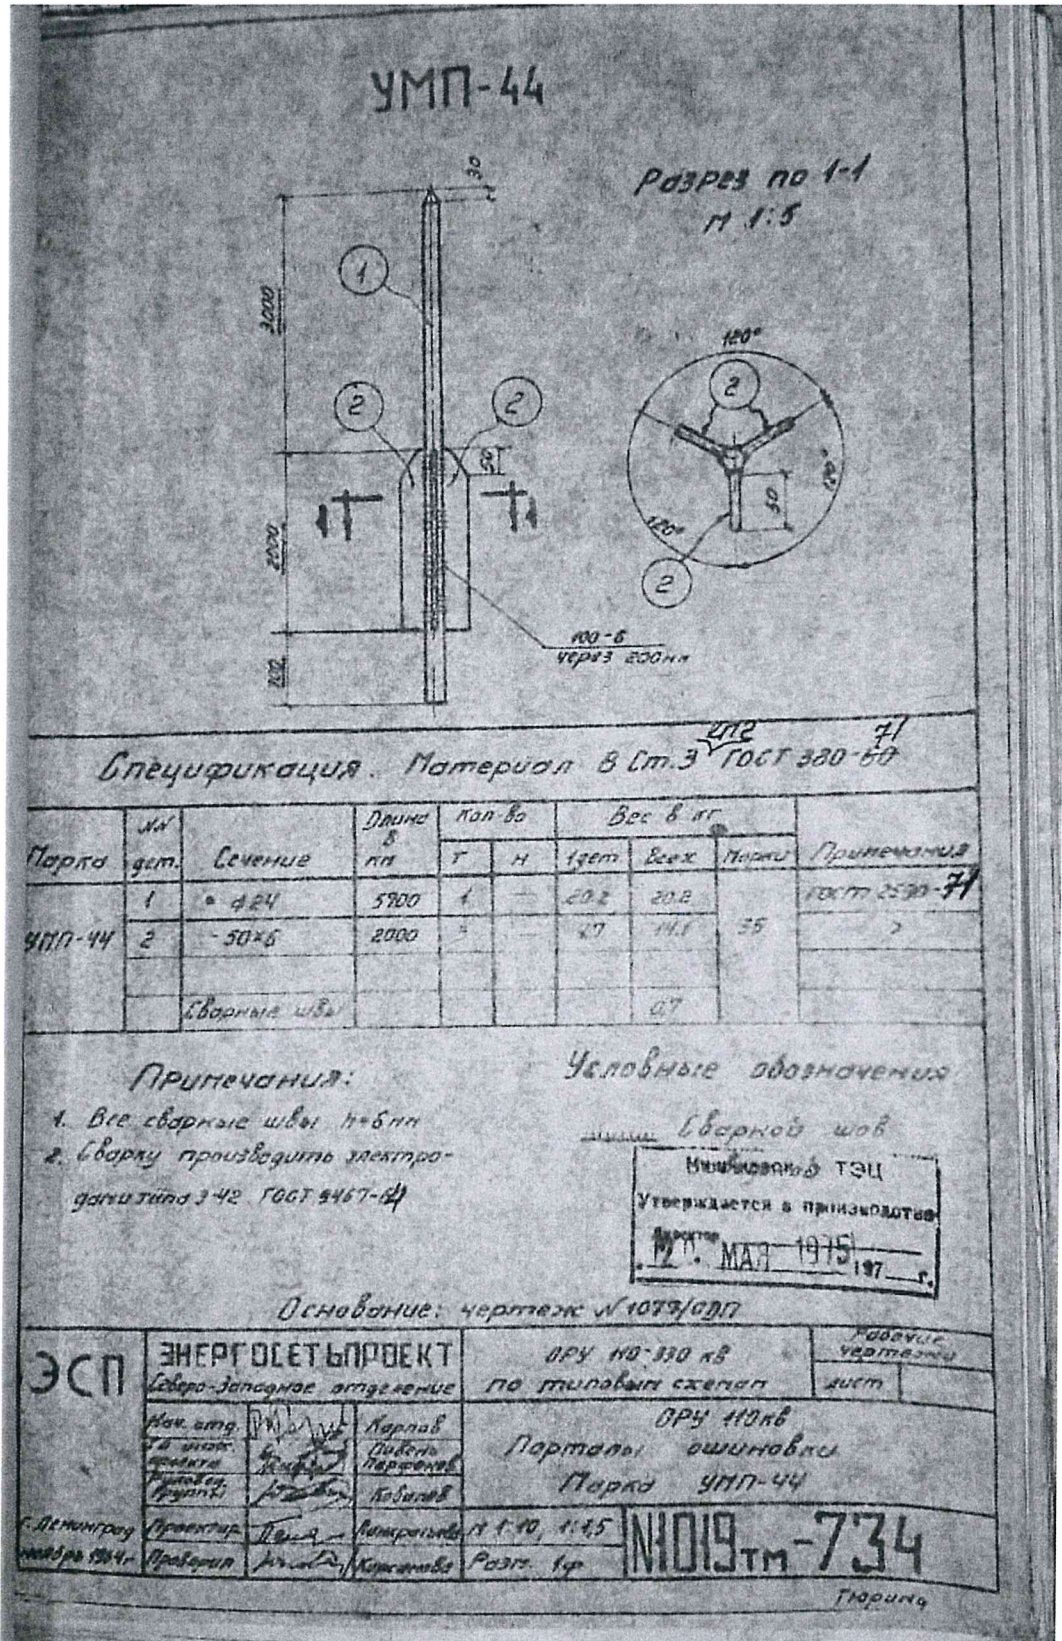 УМП-44
Разрез по 1-1
М 1:5
30
1
3000
2
2
50
1 1
2000
100-6
через 200мм
120°
2
120°
50
120°
2
Спецификация. Материал В Ст.3 ГОСТ 380-60 71
Марка
NN дет.
Сечение
Длина в мм
Кол-во
т
н
Вес в кг
1 дет
Всех
Марки
Примечания
УМП-44
1
• ф24
1
20.2
20.2
35
ГОСТ 2590-71
2
- 50×6
2000
Сварные швы
0,7
Примечания:
1. Все сварные швы h=6мм
2. Сварку производить электро-
дами типа Э-42 ГОСТ 9467-
Условные обозначения
Сварной шов
ТЭЦ
Утверждается в производство
Директор
МАЯ 1975 197 г.
Основание: чертеж N1077/ОДП
ЭСП
ЭНЕРГОСЕТЬПРОЕКТ
Северо-Западное отделение
ОРУ 110-330 кв
по типовым схемам
Рабочие
чертежи
лист
Нач. отд.
Карпов
проекта
Парфенов
группы
г. Ленинград
ноябрь 1964г.
Проверил
ОРУ 110кв
Порталы ошиновки
Марка УМП-44
М 1:10, 1:1,5
Разм. 1ф
N1019тм-734
Тюрина